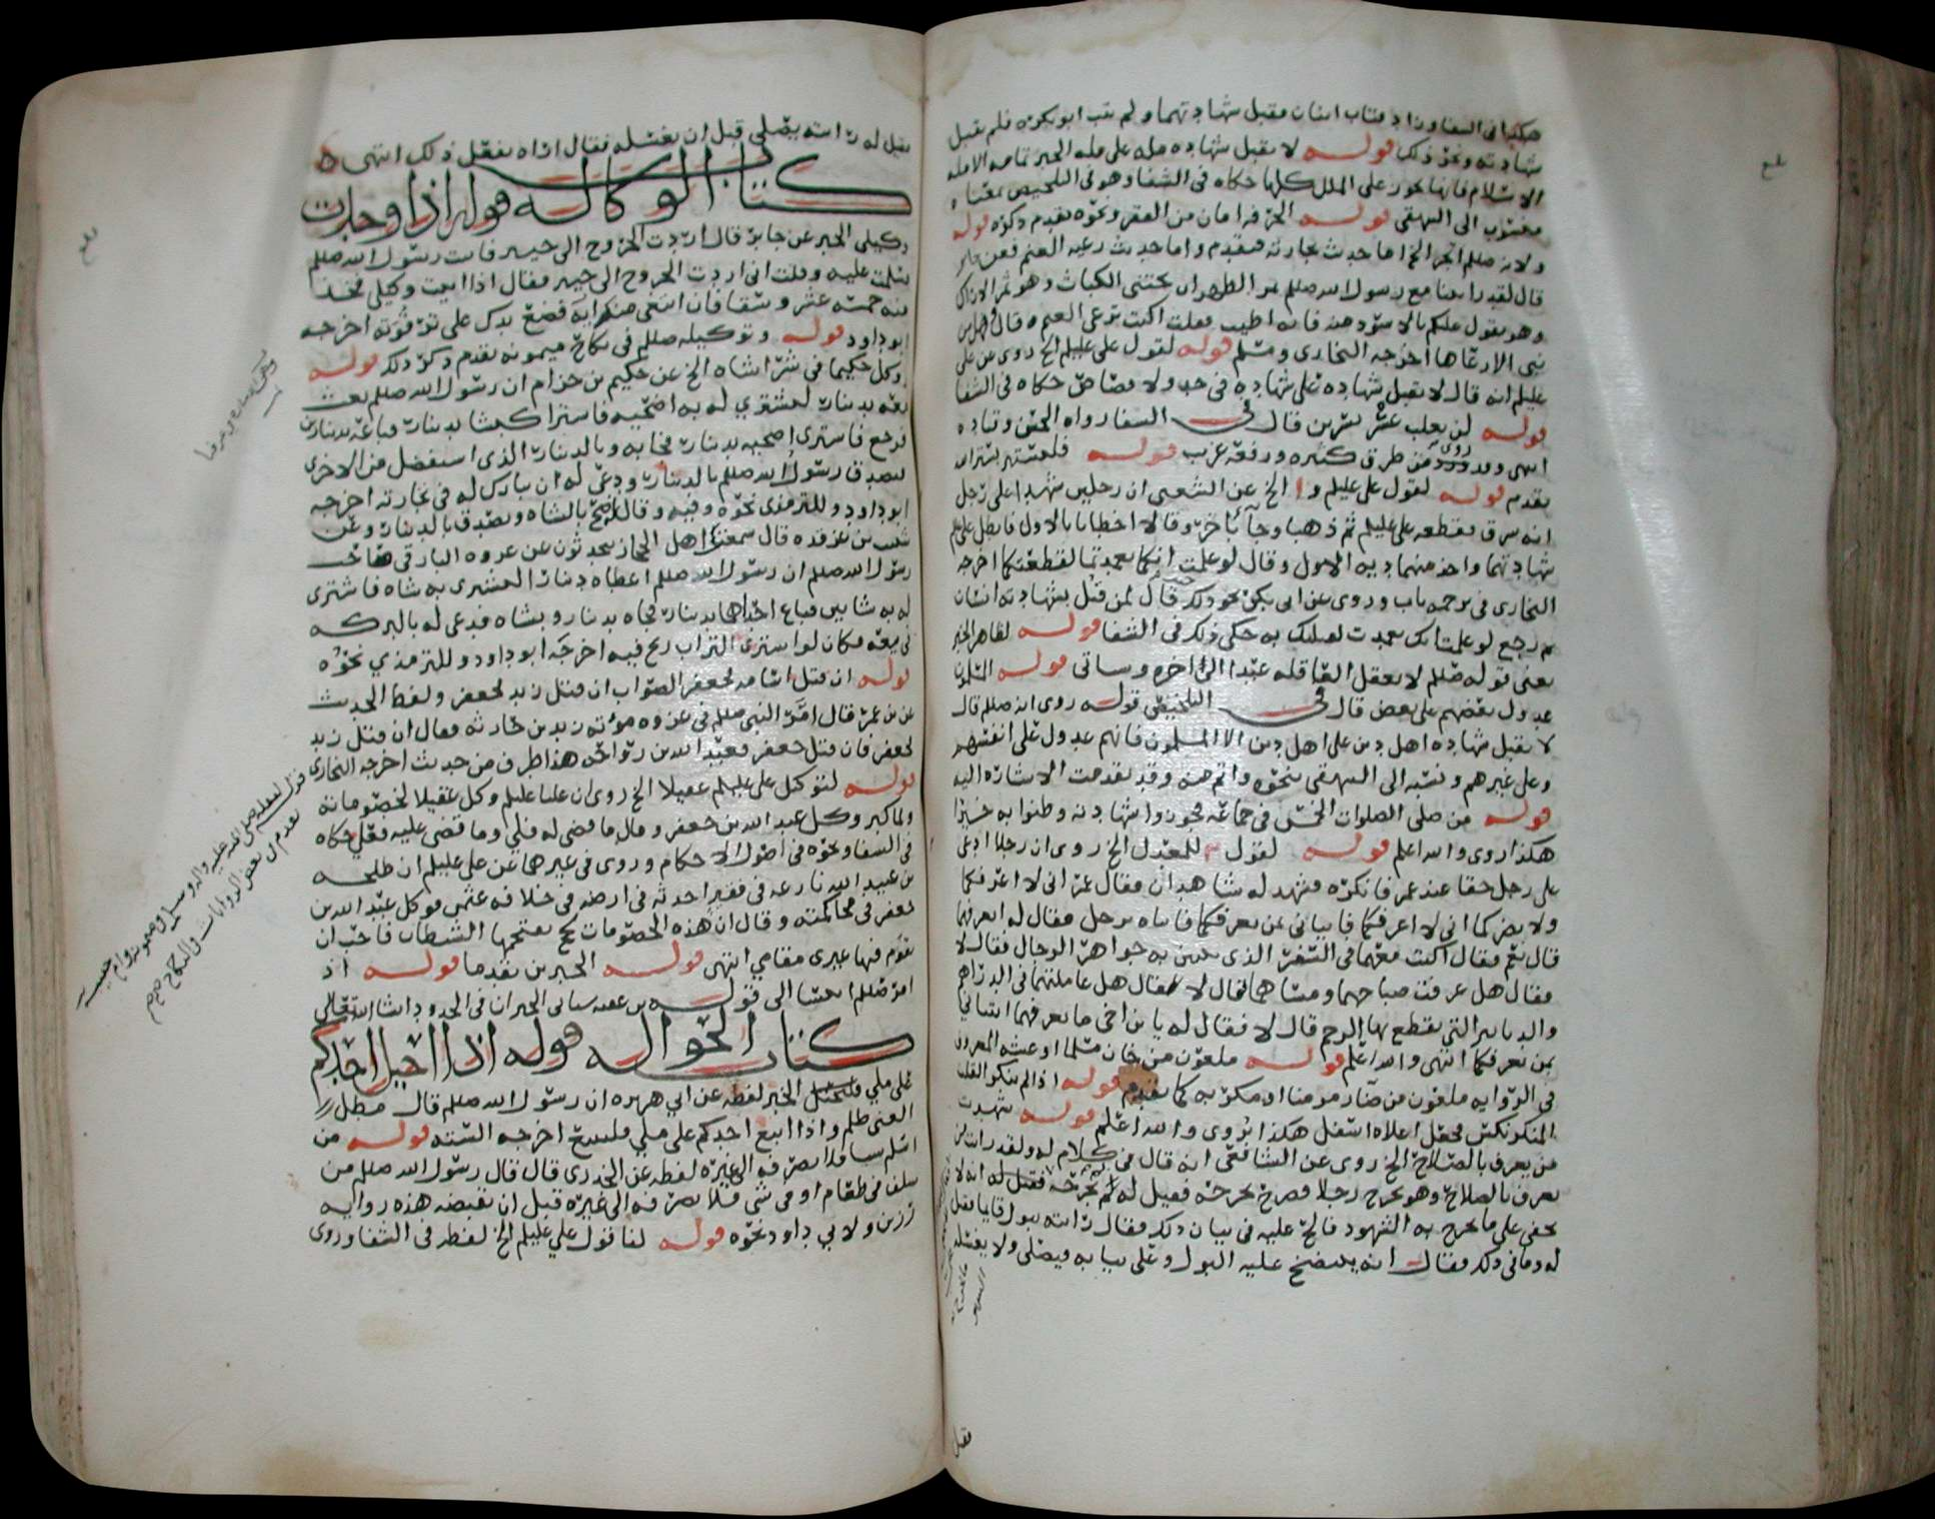 هكذا في الشفا وزاد فتاب اثنان فقبل شهادتهما ولم يتب ابو بكره فلم يقبل
شهادته ونحو ذلك قوله لا تقبل شهاده مله على مله الخبر تمامه الا مله
الاسلام فانها تجوز على الملل كلها حكاه في الشفا وهو في التلخيص بمعناه
منسوب الى البيهقي قوله الخبر فيه امان من الفقر ونحوه تقدم ذكره قوله
ولانه صللم اتجر الخ اما حديث تجارته فتقدم واما حديث رعيه الغنم فعن جابر
قال لقد راينا مع رسول الله صللم بمر الظهران نجتني الكباث وهو ثمر الاراك
وهو يقول عليكم بالاسود منه فانه اطيب فقلت اكنت ترعى الغنم قال وهل من
نبي الا رعاها اخرجه البخاري ومسلم قوله لقول علي عليلم الخ روى عن علي
عليلم انه قال لا تقبل شهاده على شهاده في حد ولا قصاص حكاه في الشفا
قوله لن يغلب عسر يسرين قال في الشفا رواه الحسن وقتاده
انتهى وقد روي من طرق كثيره ورفعه غريب قوله فليستتر بستر الله
تقدم قوله لقول علي عليلم الخ عن الشعبي ان رجلين شهدا على رجل
انه سرق فقطعه علي عليلم ثم ذهبا وجآ بآخر وقالا اخطانا بالاول فابطل علي علم
شهادتهما واخذ منهما ديه الاول وقال لو علمت انكما تعمدتما لقطعتكما اخرجه
البخاري في ترجمه باب وروى عن ابي بكر نحو ذلك قال لمن قتل بشهادته انسان
ثم رجع لو علمت انك تعمدت لقتلتك به حكى ذلك في الشفا قوله لظاهر الخبر
يعنى قوله صللم لا تعقل العاقله عبدا الى اخره وسياتي قوله المسلمون
عدول بعضهم على بعض قال في التلخيص قوله روى انه صللم قال
لا تقبل شهاده اهل دين على اهل دين الا المسلمون فانهم عدول على انفسهم
وعلى غيرهم ونسبه الى البيهقي بنحوه واتم منه وقد تقدمت الاشاره اليه
قوله من صلى الصلوات الخمس في جماعه فجوزوا شهادته وظنوا به خيرا
هكذا روى والله اعلم قوله لقول للمعدل الخ روى ان رجلا ادعى
على رجل حقا عند عمر فانكره فشهد له شاهدان فقال عمر اني لا اعرفكما
ولا يضركما اني لا اعرفكما فاتياني بمن يعرفكما فاتياه برجل فقال له اتعرفهما
قال نعم فقال اكنت معهما في السفر الذي يتبين به جواهر الرجال فقال لا
فقال هل عرفت صباحهما ومساهما فقال لا فقال هل عاملتهما في الدراهم
والدنانير التي تقطع بها الرحم قال لا فقال له يا بن اخي ما تعرفهما ائتياني
بمن يعرفكما انتهى والله اعلم قوله ملعون من خان مسلما او غشه المعروف
في الروايه ملعون من ضآر مومنا او مكر به كما تقدم قوله اذا لم ينكر القلب
المنكر نكس فجعل اعلاه اسفل هكذا تروى والله اعلم قوله شهدت
من يعرف بالصلاح الخ روى عن الشافعي انه قال في كلام له ولقد رايت من
يعرف بالصلاح وهو يجرح رجلا فصرح بجرحه فقيل له لم تجرحه فقيل له انه لا
يخفى علي ما يجرح به الشهود فالح عليه في بيان ذلك فقال رايته يبول قايما فقيل
له وما في ذلك فقال انه ينضخ عليه البول وعلى ثيابه فيصلي ولا يغسله
فقيل
فقيل له رايته يصلي قبل ان يغسله فقال اراه يفعل ذلك انتهى
كتاب الوكاله قوله اذا وجدت
وكيلي الخبر عن جابر قال اردت الخروج الى خيبر فاتيت رسول الله صللم
سلمت عليه وقلت اني اردت الخروج الى خيبر فقال اذا اتيت وكيلي فخذ
منه خمسه عشر وسقا فان ابتغى منك ايه فضع يدك على ترقوته اخرجه
ابو داود قوله وتوكيله صللم في نكاح ميمونه تقدم ذكر ذلك قوله
ووكل حكيما في شرا شاه الخ عن حكيم بن حزام ان رسول الله صللم بعث
معه بدينار ليشتري له به اضحيه فاشترا كبشا بدينار وباعه بدينارين
فرجع فاشترى اضحيه بدينار فجا به وبالدينار الذي استفضل من الاخرى
فتصدق رسول الله صللم بالدينار ودعى له ان يبارك له في تجارته اخرجه
ابو داود وللترمذي نحوه وفيه وقال ضح بالشاه وتصدق بالدينار وعن
شبيب بن غرقده قال سمعت اهل الحجاز يحدثون عن عروه البارقي
رسول الله صللم ان رسول الله صللم اعطاه دينارا ليشتري به شاه فاشترى
له به شاتين فباع احداهما بدينار فجاه بدينار وبشاه فدعى له بالبركه
في بيعه فكان لو اشترى التراب ربح فيه اخرجه ابو داود وللترمذي نحوه
قوله ان قتل اسامه فجعفر الصواب ان قتل زيد فجعفر ولفظ الحديث
عن بن عمر قال امر النبي صللم في غزوه موته زيد بن حارثه فقال ان قتل زيد
فجعفر فان قتل جعفر فعبد الله بن رواحه هذا طرف من حديث اخرجه البخاري
قوله لتوكل علي عليلم عقيلا الخ روى ان عليا عليلم وكل عقيلا لخصوماته
ولما كبر وكل عبد الله بن جعفر وقال ما قضي له فلي وما قضي عليه فعلي حكاه
في الشفا ونحوه في اصول الاحكام وروى في غيرهما عن علي عليلم ان طلحه
بن عبيد الله نازعه في ضفير احدثه في ارضه في خلافه عثمن فوكل عبد الله بن
جعفر في محاكمته وقال ان هذه الخصومات يحضرها الشيطان فاحب ان
يقوم فيها غيري مقامي انتهى قوله الخبرين تقدما قوله اذ
امر صللم انيسا الى قوله سياتي الخبران في الحدود ان شا الله تعالى
كتاب الحواله قوله اذا احيل احدكم
على ملي فليحتل الخبر لفظه عن ابي هريره ان رسول الله صللم قال مطل
الغني ظلم واذا اتبع احدكم على ملي فليتبع اخرجه السته قوله من
اسلم سلفا فلا يصرفه الى غيره لفظه عن الخدري قال قال رسول الله صللم من
سلف في طعام او في شي فلا يصرفه الى غيره قبل ان تقبضه هذه روايه
رزين ولابي داود نحوه قوله لنا قول علي عليلم الخ لفظه في الشفا وروى